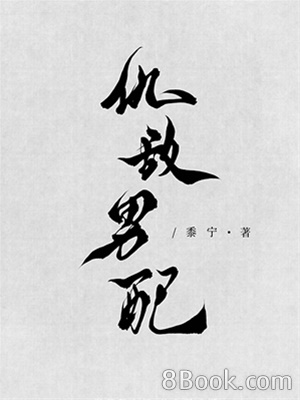 仇敌男配
/ 黍宁·著
8Book.com